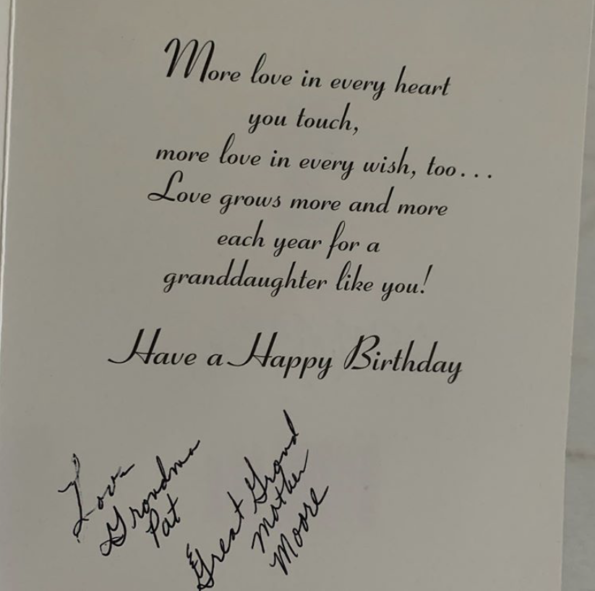 More love in every heart
you touch,
more love in every wish, too...
Love grows more and more
each year for a
granddaughter like you!
Have a Happy Birthday
Love
Grandma
Pat
& Great Grand
Mother
Moore